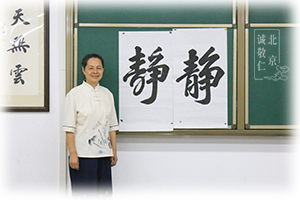 天無雲
靜靜
北京
诚敬仁